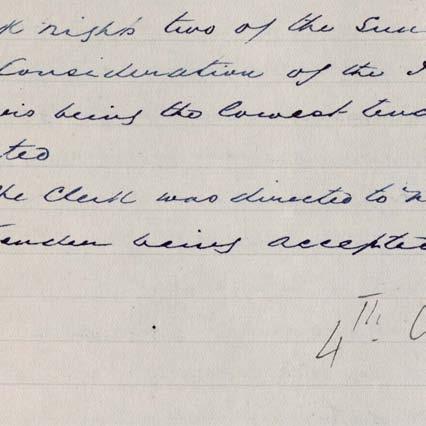 k night two of the Sun
Consideration of the
is being the lowest tend
ted
he Clerk was directed to
ender being accepted
4TH.